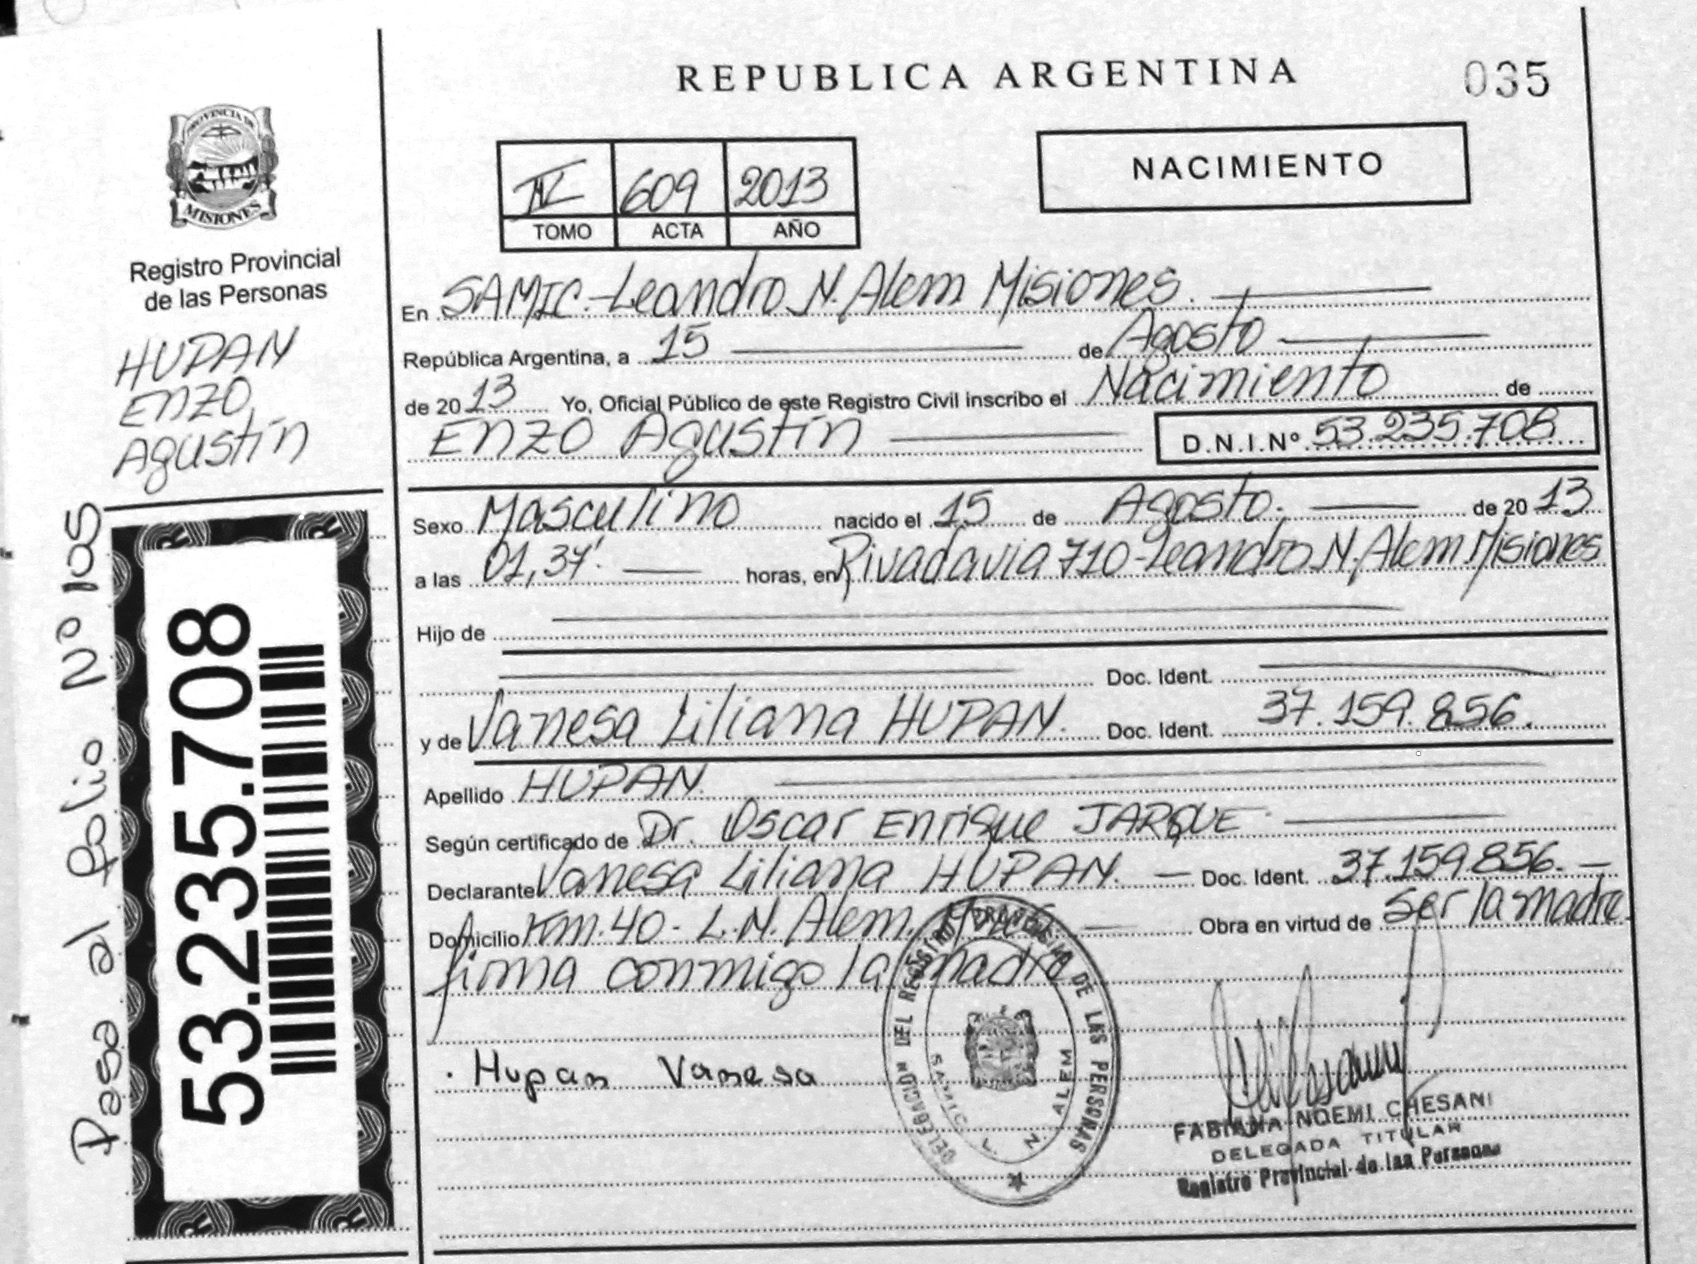 REPUBLICA ARGENTINA
035
PROVINCIA DE
MISIONES
Registro Provincial
de las Personas
HUPAN
ENZO
Agustín
Pasa al folio Nº 105
53.235.708
609 2013
TOMO ACTA AÑO
NACIMIENTO
En SAMIC.-Leandro N. Alem Misiones.
República Argentina, a 15 de Agosto
de 2013 Yo, Oficial Público de este Registro Civil inscribo el Nacimiento de
ENZO Agustín D.N.I.Nº 53.235.708
Sexo Masculino nacido el 15 de Agosto. de 2013
a las 01,37' horas, en Rivadavia 710-Leandro N. Alem Misiones
Hijo de
Doc. Ident.
y de Vanesa Liliana HUPAN. Doc. Ident. 37.159.856.
Apellido HUPAN.
Según certificado de Dr. Oscar Enrique JARQUE
Declarante Vanesa Liliana HUPAN. Doc. Ident. 37.159.856.
Domicilio Km. 40 - L.N. Alem. Obra en virtud de ser la madre
firma conmigo la madre
Hupan Vanesa
DELEGACION DEL REGISTRO PROVINCIAL DE LAS PERSONAS
S.A.M.I.C. L. N. ALEM
FABIANA NOEMI CHESANI
DELEGADA TITULAR
Registro Provincial de las Personas